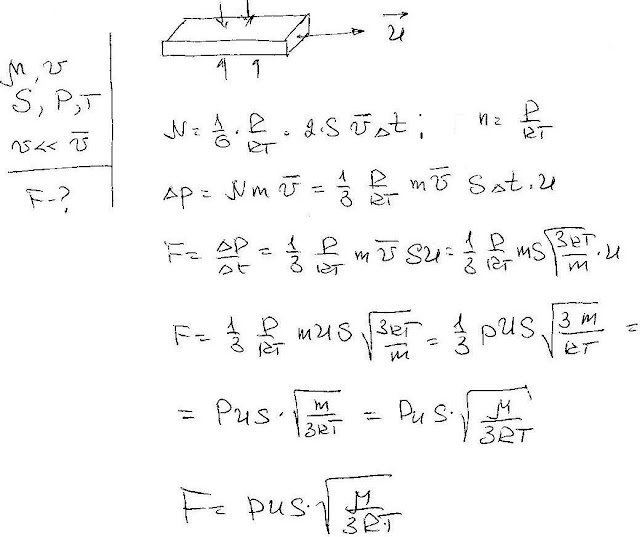 u⃗
M, v
S, P, T
v << v̄
F-?
N = 1/6 · P/kT · 2·S v̄ Δt ; n = P/kT
Δp = N m v̄ = 1/3 P/kT m v̄ S Δt · u
F = Δp/Δt = 1/3 P/kT m v̄ S u = 1/3 P/kT m S √(3kT/m) · u
F = 1/3 P/kT m u S √(3kT/m) = 1/3 p u S √(3m/kT) =
= P u S · √(m/3kT) = P u S · √(M/3RT)
F = p u S · √(M/3RT)